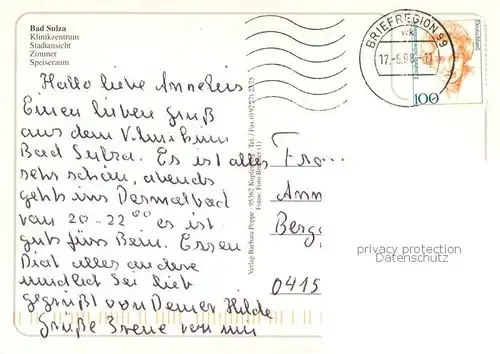 Bad Sulza
Klinikzentrum
Stadtansicht
Zimmer
Speiseraum
Hallo liebe Annelies
Einen lieben Gruß
aus dem
Bad Sulza. Es ist alles
sehr schön, abends
gehts ins Dermalbad
von 20-22⁰⁰ es ist
guts fürs Bein. Essen
Diät alles andere
mündlich Sei lieb
gegrüßt von Deiner Hilde
Grüße von mir
Verlag Barbara Poppe · 95362 Kupferberg · Tel. / Fax (0 92 27) 23 75
Fotos: Foto (1)
BRIEFREGION 99
wk
17.-6.98
Deutschland
100
Frau
Ann
Berg
privacy protection
Datenschutz
0415